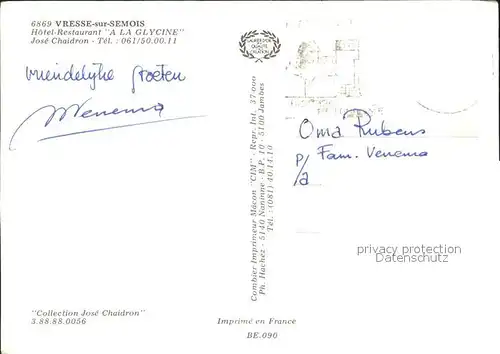 6869 VRESSE-sur-SEMOIS
Hôtel-Restaurant "A LA GLYCINE"
José Chaidron - Tél. : 061/50.00.11
vriendelijke groeten
Venema
Combier Imprimeur Mâcon "CIM" - Repr. Int. 37 000
Ph. Hachez - 5140 Naninne - B.P. 10 - 5100 Jambes
Tél. : (081) 40.14.10
Oma Rubens
p/a Fam. Venema
privacy protection
datenschutz
"Collection José Chaidron"
3.88.88.0056
Imprimé en France
BE.090